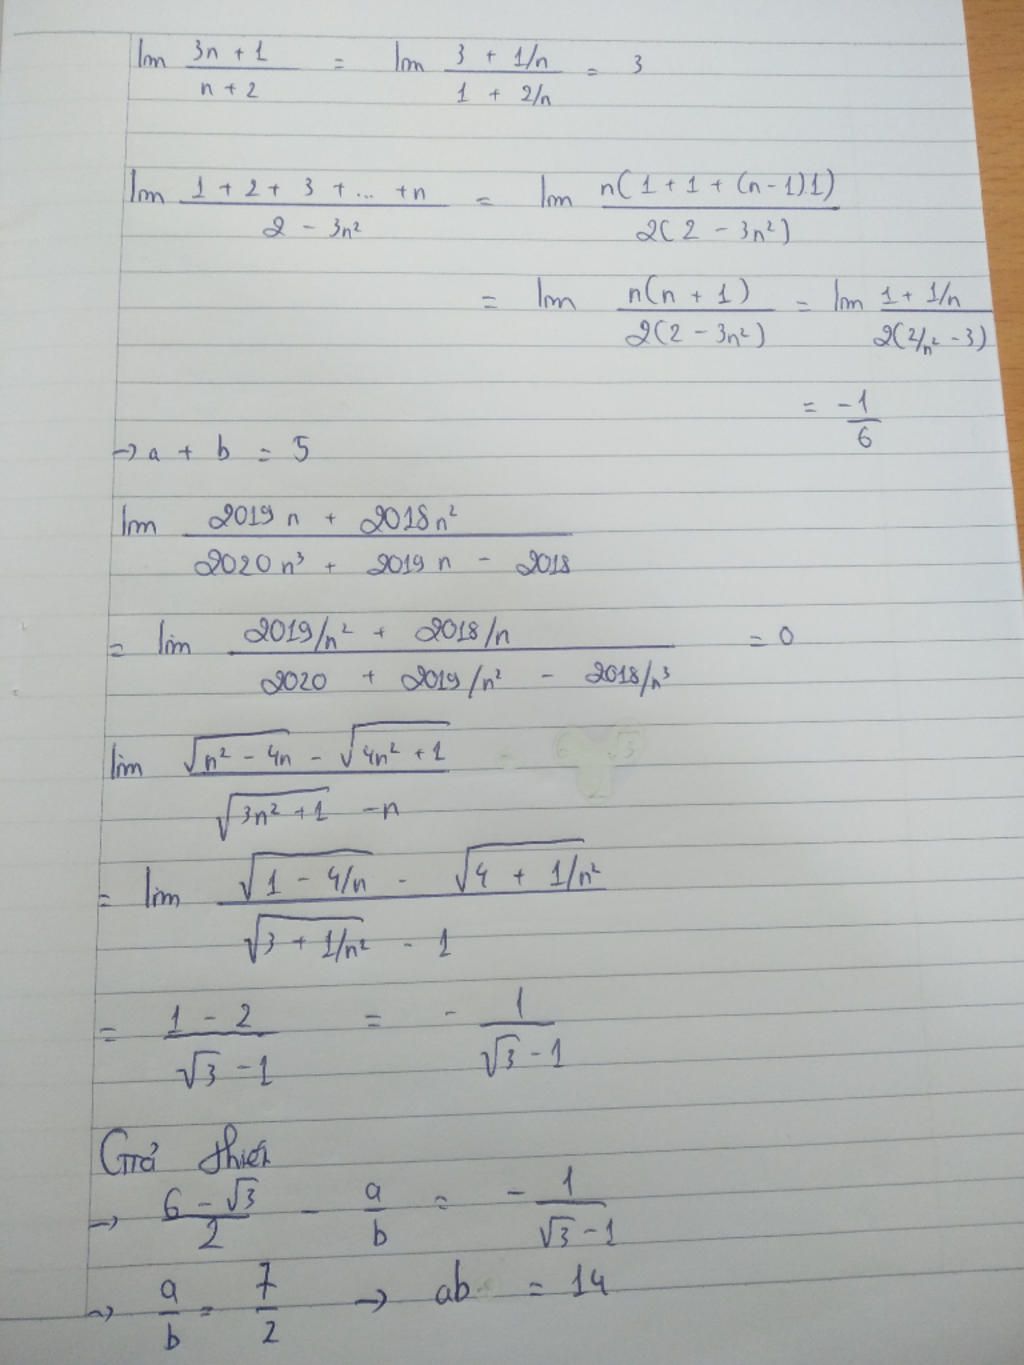 lim (3n + 1)/(n + 2) = lim (3 + 1/n)/(1 + 2/n) = 3
lim (1 + 2 + 3 + ... + n)/(2 - 3n²) = lim n(1 + 1 + (n - 1)1)/2(2 - 3n²)
= lim n(n + 1)/2(2 - 3n²) = lim (1 + 1/n)/2(2/n² - 3)
= -1/6
→ a + b = 5
lim (2019n + 2018n²)/(2020n³ + 2019n - 2018)
= lim (2019/n² + 2018/n)/(2020 + 2019/n² - 2018/n³) = 0
lim (√(n² - 4n) - √(4n² + 1))/(√(3n² + 1) - n)
= lim (√(1 - 4/n) - √(4 + 1/n²))/(√(3 + 1/n²) - 1)
= (1 - 2)/(√3 - 1) = - 1/(√3 - 1)
Giả thiết
→ (6 - √3)/2 - a/b = - 1/(√3 - 1)
→ a/b = 7/2 → ab = 14